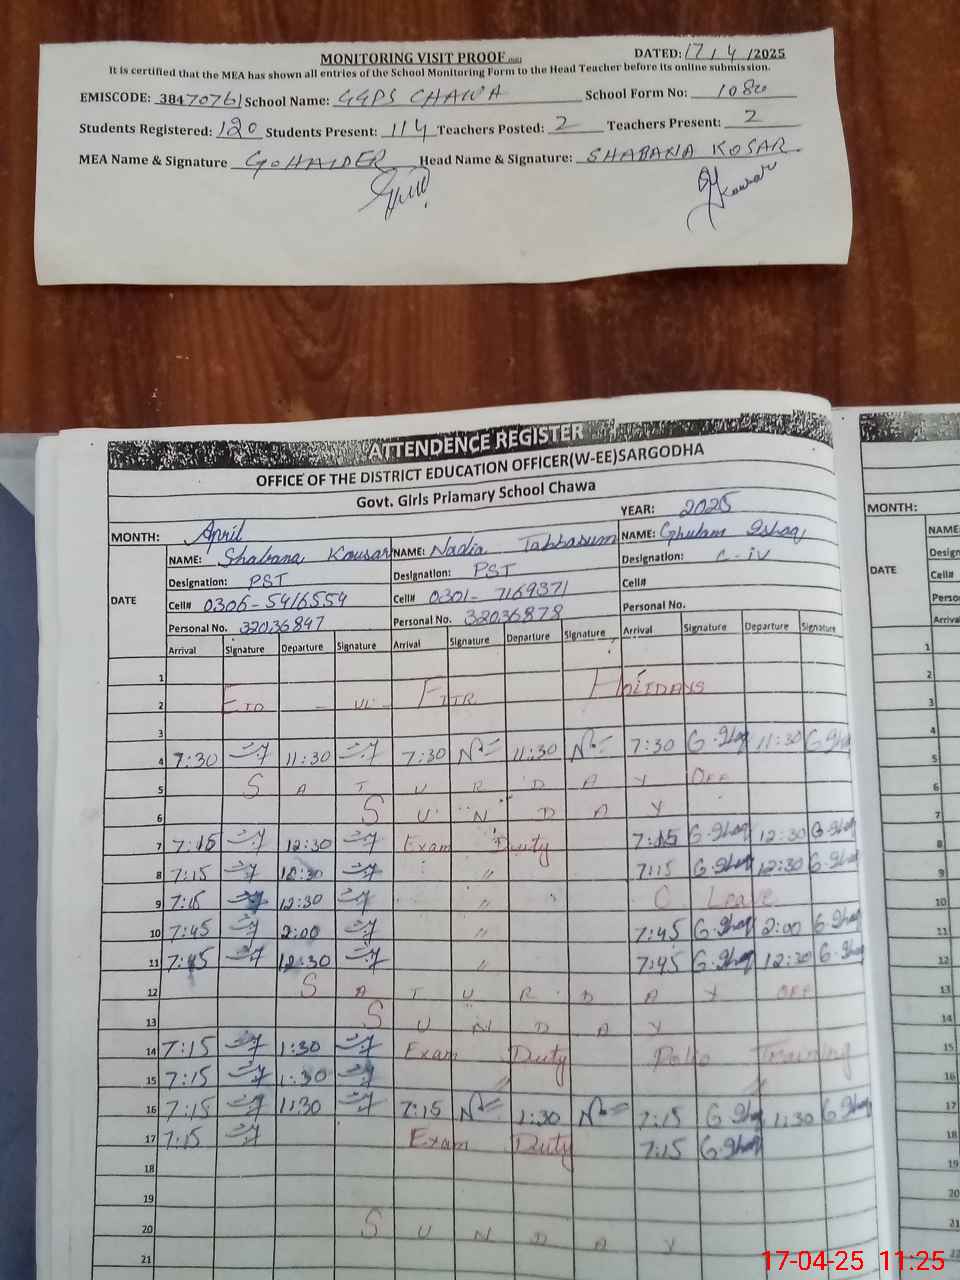 MONITORING VISIT PROOF
DATED: 17/4/2025
It is certified that the MEA has shown all entries of the School Monitoring Form to the Head Teacher before its online submission.
EMISCODE: 38470761 School Name: GGPS CHAWA School Form No: 1080
Students Registered: 120 Students Present: 114 Teachers Posted: 2 Teachers Present: 2
MEA Name & Signature G.HAIDER Head Name & Signature: SHABANA KOSAR
Kousar
ATTENDENCE REGISTER
OFFICE OF THE DISTRICT EDUCATION OFFICER(W-EE)SARGODHA
Govt. Girls Priamary School Chawa
MONTH: April YEAR: 2025
DATE
NAME: Shabana Kausar NAME: Nadia Tabbasum NAME: Ghulam Ishaq
Designation: PST Designation: PST Designation: C-iv
Cell# 0306-5416554 Cell# 0301-7169371 Cell#
Personal No. 32036847 Personal No. 32036878 Personal No.
Arrival Signature Departure Signature Arrival Signature Departure Signature Arrival Signature Departure Signature
1
2 EID - UL FITR HOLIDAYS
3
4 7:30 11:30 7:30 11:30 7:30 G.Ishaq 11:30 G.Ishaq
5 S A T U R D A Y OFF
6 S U N D A Y
7 7:15 12:30 Exam Duty 7:15 G.Ishaq 12:30 G.Ishaq
8 7:15 12:30 " 7:15 G.Ishaq 12:30 G.Ishaq
9 7:15 12:30 " C Leave
10 7:45 2:00 " 7:45 G.Ishaq 2:00 G.Ishaq
11 7:45 12:30 " 7:45 G.Ishaq 12:30 G.Ishaq
12 S A T U R D A Y OFF
13 S U N D A Y
14 7:15 1:30 Exam Duty Polio Training
15 7:15 1:30 " "
16 7:15 11:30 7:15 1:30 7:15 G.Ishaq 1:30 G.Ishaq
17 7:15 Exam Duty 7:15 G.Ishaq
18
19
20 S U N D A Y
21
MONTH:
NAME
DATE
Design
Cell#
Perso
Arrival
1
2
3
4
5
6
7
8
9
10
11
12
13
14
15
16
17
18
19
20
21
22
17-04-25 11:25